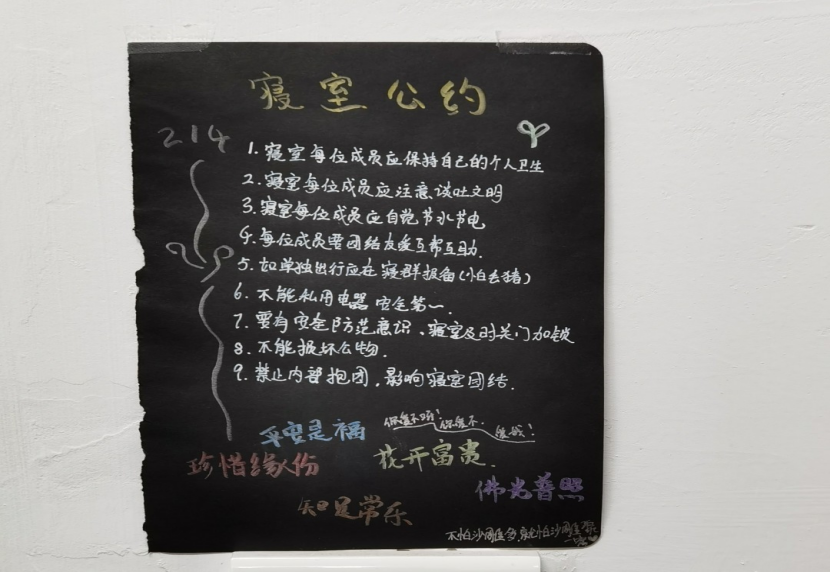 寝室公约
214
1. 寝室每位成员应保持自己的个人卫生
2. 寝室每位成员应注意谈吐文明
3. 寝室每位成员应自觉节水节电
4. 每位成员要团结友爱互帮互助.
5. 如单独出行应在寝群报备(怕丢猪)
6. 不能私用电器 安全第一.
7. 要有安全防范意识、寝室及时关门加锁
8. 不能损坏公物.
9. 禁止内部抱团,影响寝室团结.
平安是福
珍惜缘份
花开富贵.
佛光普照
知足常乐
不怕沙雕多,就怕沙雕